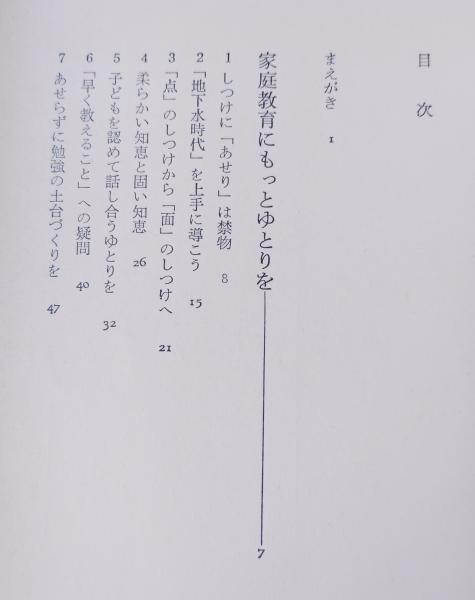 目次
まえがき 1
家庭教育にもっとゆとりを 7
1 しつけに「あせり」は禁物 8
2 「地下水時代」を上手に導こう 15
3 「点」のしつけから「面」のしつけへ 21
4 柔らかい知恵と固い知恵 26
5 子どもを認めて話し合うゆとりを 32
6 「早く教えること」への疑問 40
7 あせらずに勉強の土台づくりを 47